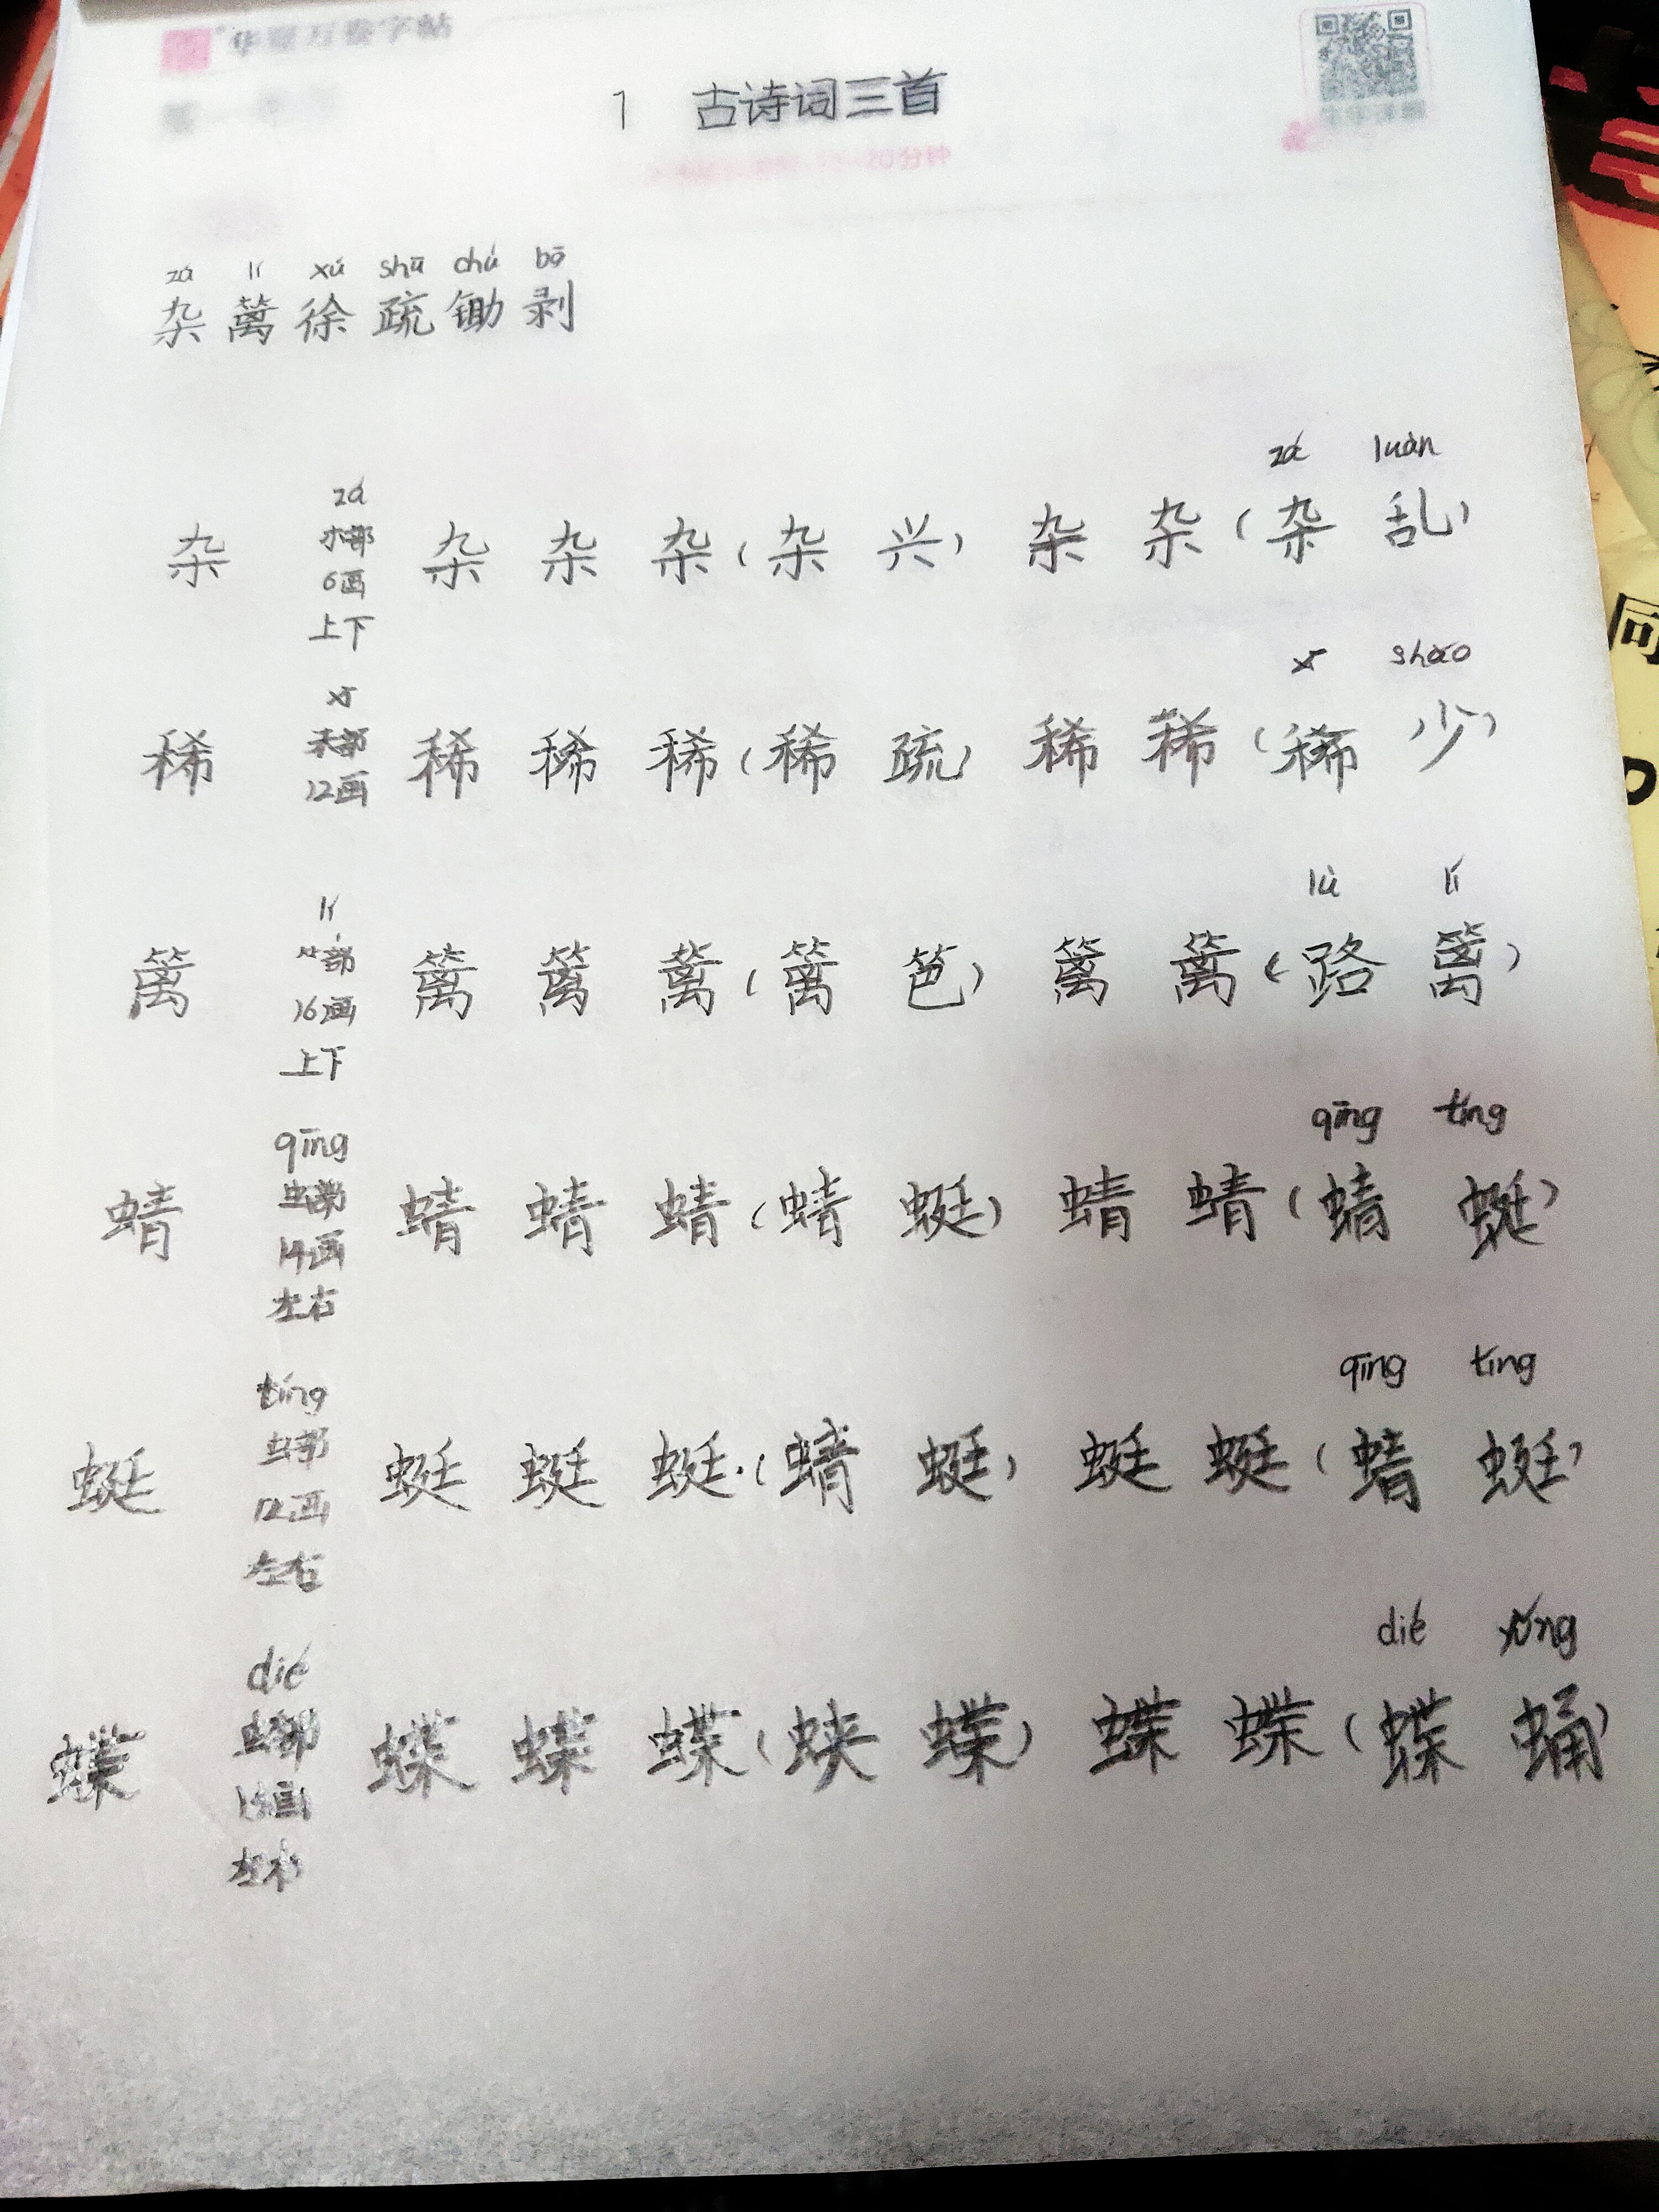 华夏万卷字帖
1 古诗词三首
分钟
zá lí xú shū chú bō
杂 篱 徐 疏 锄 剥
zá luàn
杂 zá 木部 6画 上下 杂 杂 杂 (杂 兴) 杂 杂 (杂 乱)
xī shǎo
稀 xī 禾部 12画 稀 稀 稀 (稀 疏) 稀 稀 (稀 少)
lù lí
篱 lí 竹部 16画 上下 篱 篱 篱 (篱 笆) 篱 篱 (路 篱)
qīng tíng
蜻 qīng 虫部 14画 左右 蜻 蜻 蜻 (蜻 蜓) 蜻 蜻 (蜻 蜓)
qīng tíng
蜓 tíng 虫部 12画 左右 蜓 蜓 蜓 (蜻 蜓) 蜓 蜓 (蜻 蜓)
dié yǒng
蝶 dié 虫部 15画 左右 蝶 蝶 蝶 (蛱 蝶) 蝶 蝶 (蝶 蛹)
同